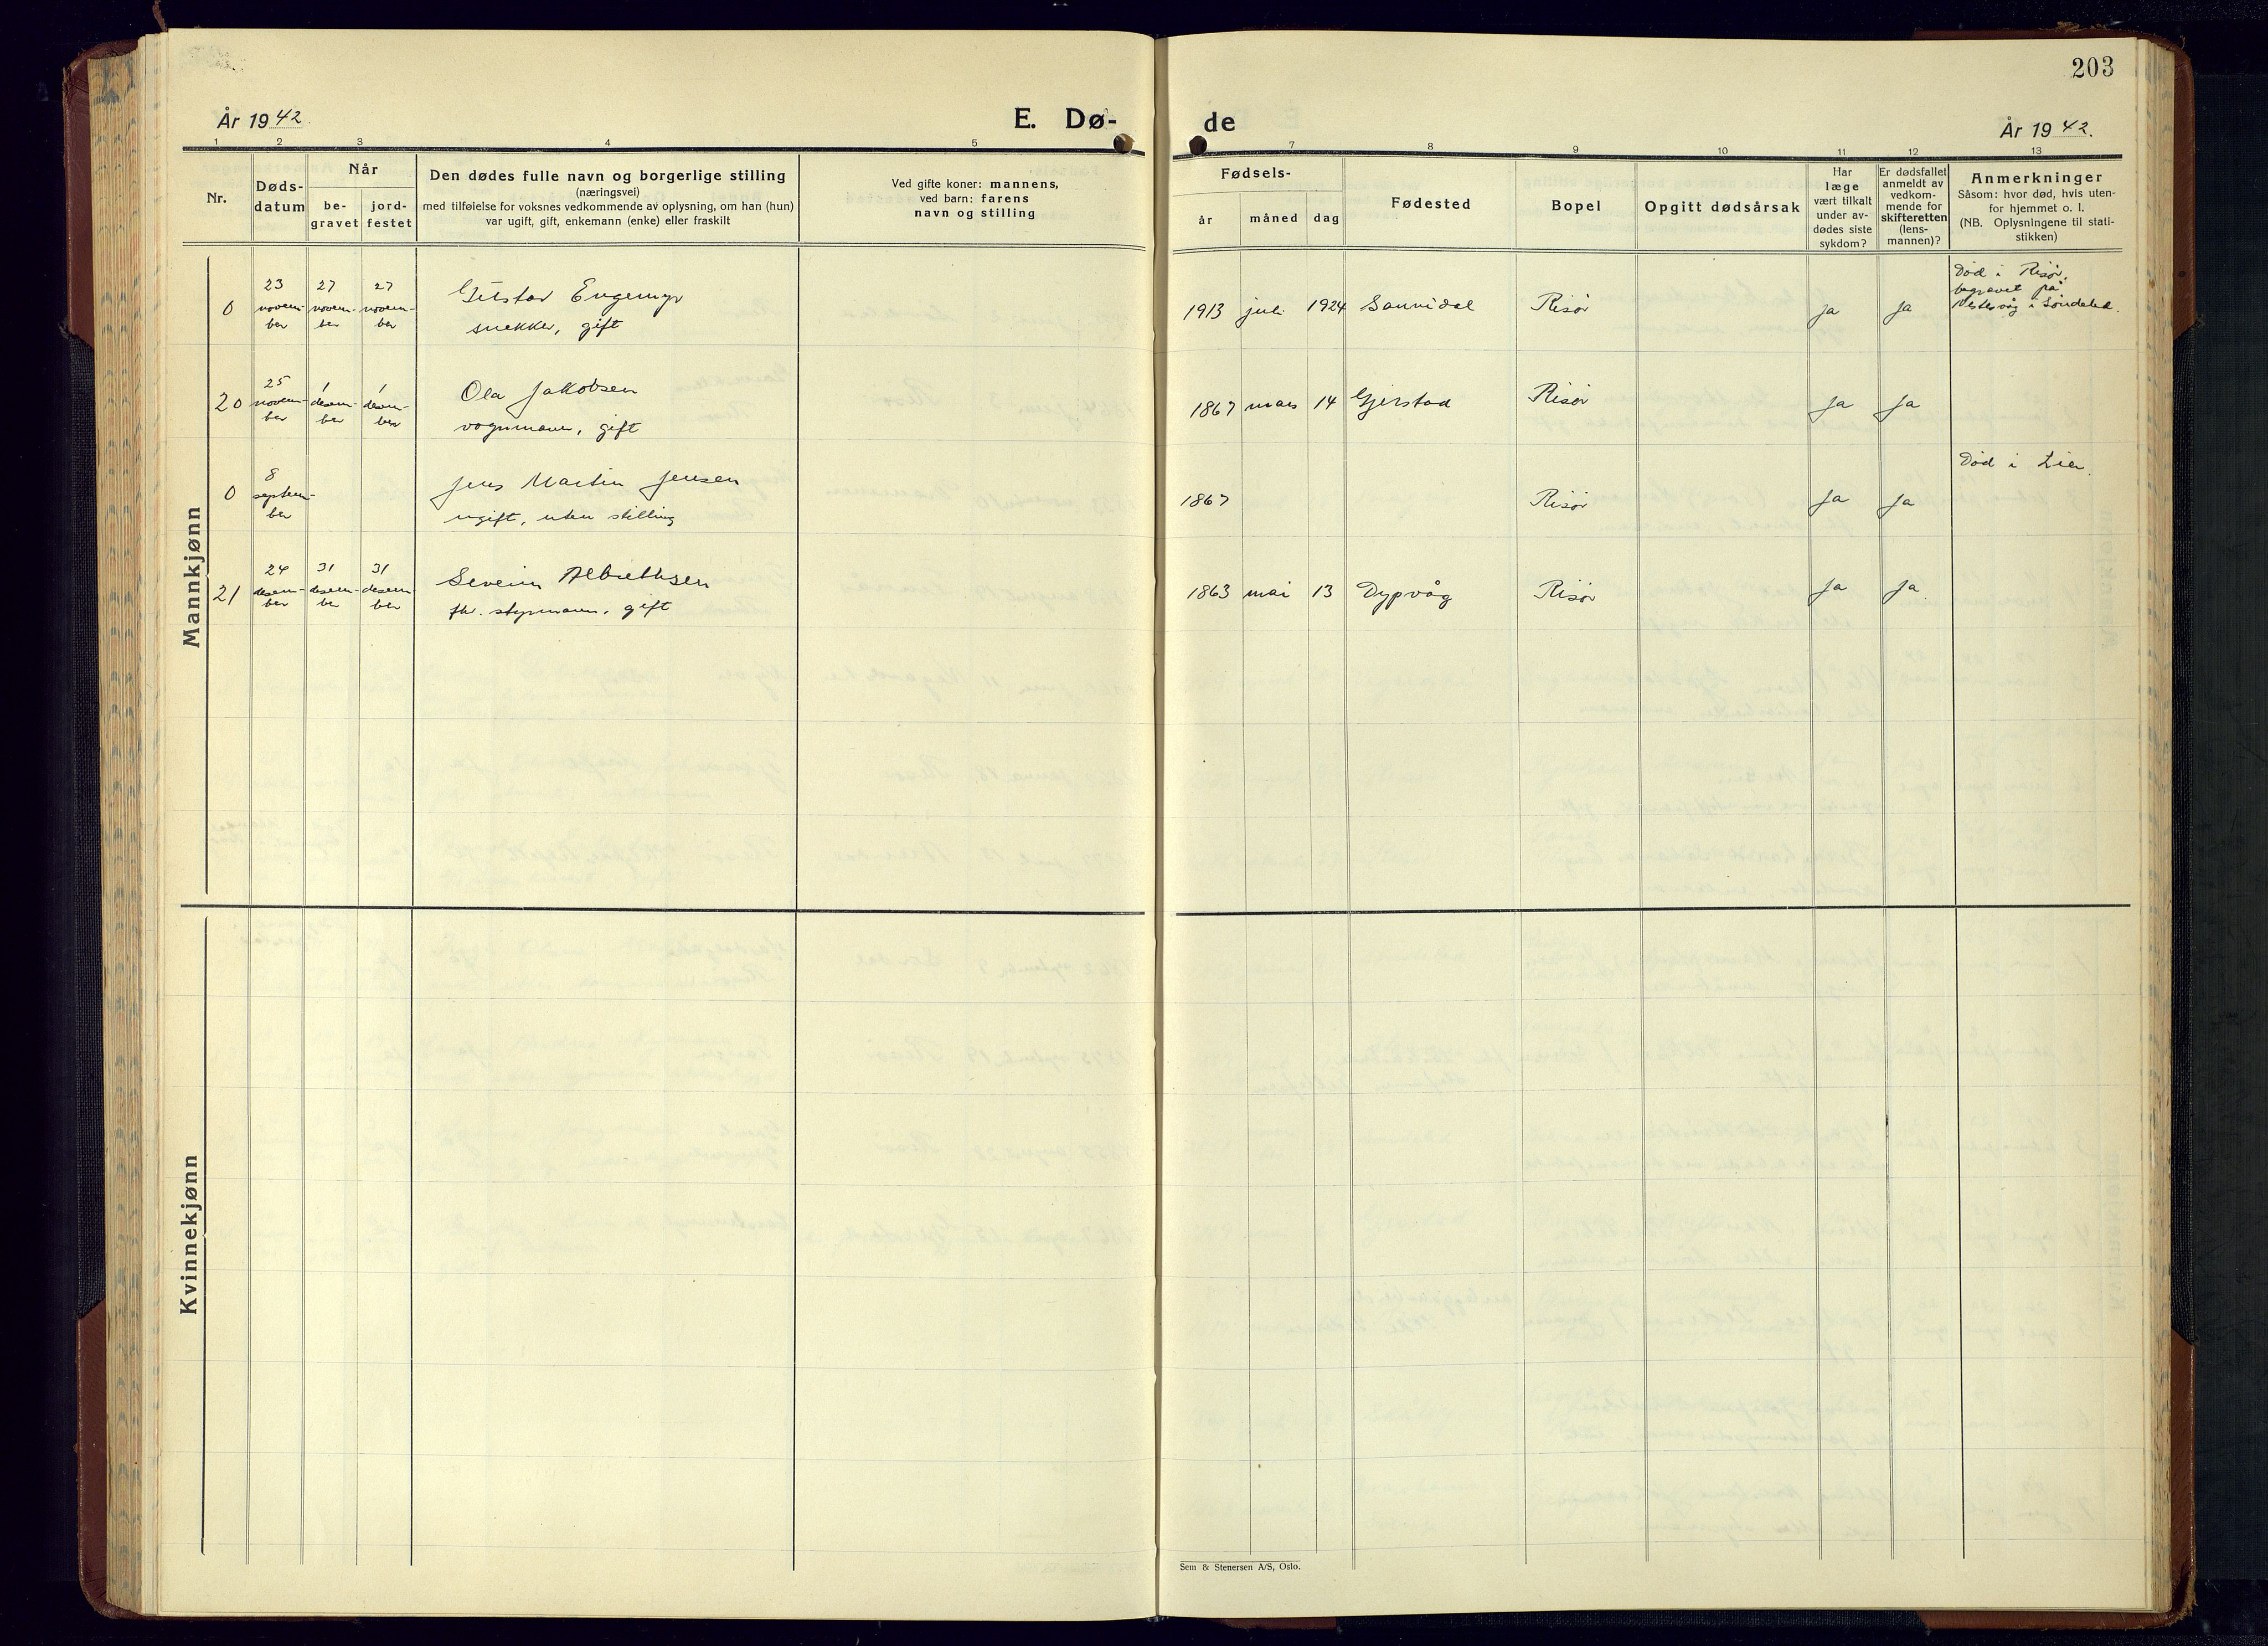 203
År 1942
E. Dø-
de
År 1942.
1 2 3 4 5
7 8 9 10 11 12 13
Nr.
Døds-
datum
Når
be-
gravet
jord-
festet
Den dødes fulle navn og borgerlige stilling
(næringsvei)
med tilføielse for voksnes vedkommende av oplysning, om han (hun)
var ugift, gift, enkemann (enke) eller fraskilt
Ved gifte koner: mannens,
ved barn: farens
navn og stilling
Fødsels-
år
måned
dag
Fødested
Bopel
Opgitt dødsårsak
Har
læge
vært tilkalt
under av-
dødes siste
sykdom?
Er dødsfallet
anmeldt av
vedkom-
mende for
skifteretten
(lens-
mannen)?
Anmerkninger
Såsom: hvor død, hvis uten-
for hjemmet o. l.
(NB. Oplysningene til stati-
stikken)
Mannkjønn
0
23
novem-
ber
27
novem-
ber
27
novem-
ber
Gustav Engemyr
snekker, gift
1913 juli 1924 Sannidal
Risør
ja
ja
Død i Risør,
begravet på
i Søndeled.
20
25
novem-
ber
1
desem-
ber
1
desem-
ber
Ola Jakobsen
vognmann, gift
1867 mars 14 Gjerstad
Risør
ja
ja
0
8
septem-
ber
Jens Martin Jensen
ugift, uten stilling
1867
Risør
ja
ja
Død i Lier.
21
24
desem-
ber
31
desem-
ber
31
desem-
ber
Severin Albrethsen
fhv. styrmann, gift
1863 mai 13 Dypvåg
Risør
ja
ja
Kvinnekjønn
Sem & Stenersen A/S, Oslo.